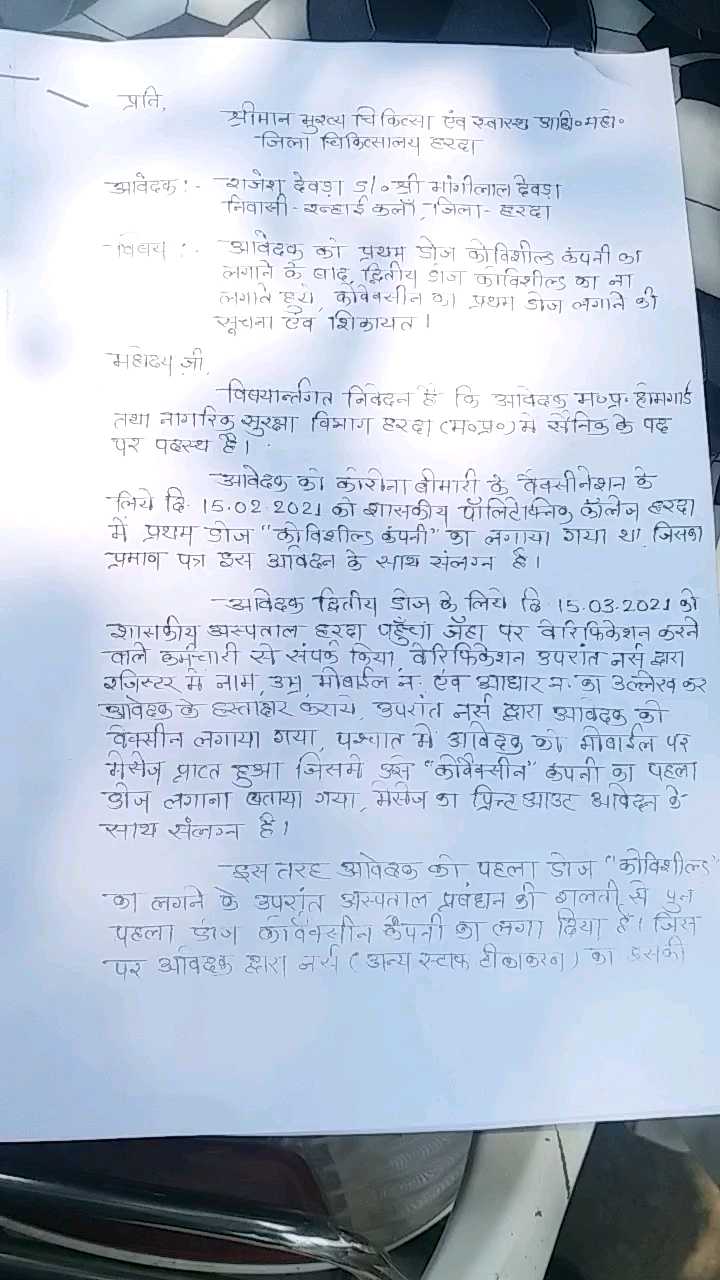 प्रति,
श्रीमान मुख्य चिकित्सा एंव स्वास्थ अधि॰महो॰
जिला चिकित्सालय हरदा
आवेदक :- राजेश देवड़ा S/० श्री मांगीलाल देवड़ा
निवासी - रन्हाई कलाँ, जिला - हरदा
विषय :- आवेदक को प्रथम डोज कोविशील्ड कंपनी का
लगाने के बाद, द्वितीय डोज कोविशील्ड का ना
लगाते हुये, कोवेक्सीन का प्रथम डोज लगाने की
सूचना एंव शिकायत।
महोदय जी,
विषयान्तर्गत निवेदन है कि आवेदक म०प्र० होमगार्ड
तथा नागरिक सुरक्षा विभाग हरदा (म०प्र०) मे सैनिक के पद
पर पदस्थ है।
आवेदक को कोरोना बीमारी के वैक्सीनेशन के
लिये दि. 15.02.2021 को शासकीय पॉलिटेक्निक कॉलेज हरदा
में प्रथम डोज "कोविशील्ड कंपनी" का लगाया गया था, जिसका
प्रमाण पत्र इस आवेदन के साथ संलग्न है।
आवेदक द्वितीय डोज के लिये दि. 15.03.2021 को
शासकीय अस्पताल हरदा पहुँचा जँहा पर वेरिफिकेशन करने
वाले कर्मचारी से संपर्क किया, वेरिफिकेशन उपरांत नर्स द्वारा
रजिस्टर में नाम, उम्र, मोबाईल न. एंव आधार न. का उल्लेख कर
आवेदक के हस्ताक्षर कराये, उपरांत नर्स द्वारा आवेदक को
वेक्सीन लगाया गया, पश्चात मे आवेदक को मोबाईल पर
मेसेज प्राप्त हुआ जिसमे उसे "कोवैक्सीन" कंपनी का पहला
डोज लगाना बताया गया, मेसेज का प्रिन्ट आउट आवेदन के
साथ संलग्न है।
इस तरह आवेदक को पहला डोज "कोविशील्ड"
का लगने के उपरांत अस्पताल प्रबंधन की गलती से पुन
पहला डोज कोवैक्सीन कंपनी का लगा दिया है। जिस
पर आवेदक द्वारा नर्स (अन्य स्टाफ टीकाकरण) को इसकी